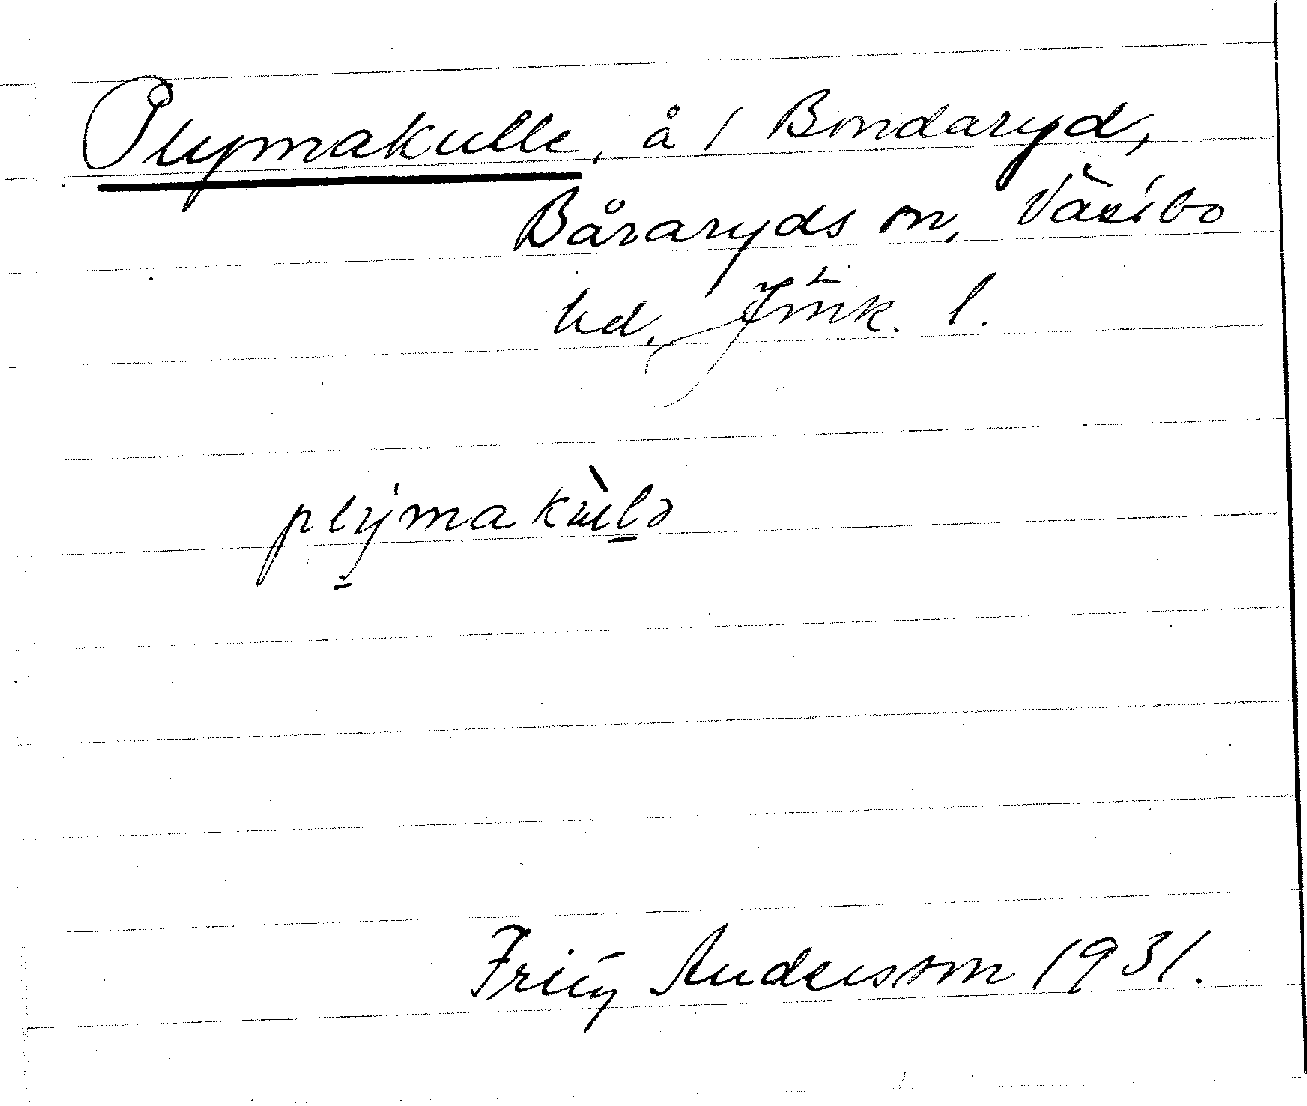 Plymakulle, å 1 Bondaryd,
Båraryds sn, Västbo
hd, Jönk. l.
plýmakùlə
Fritz Andersson 1931.